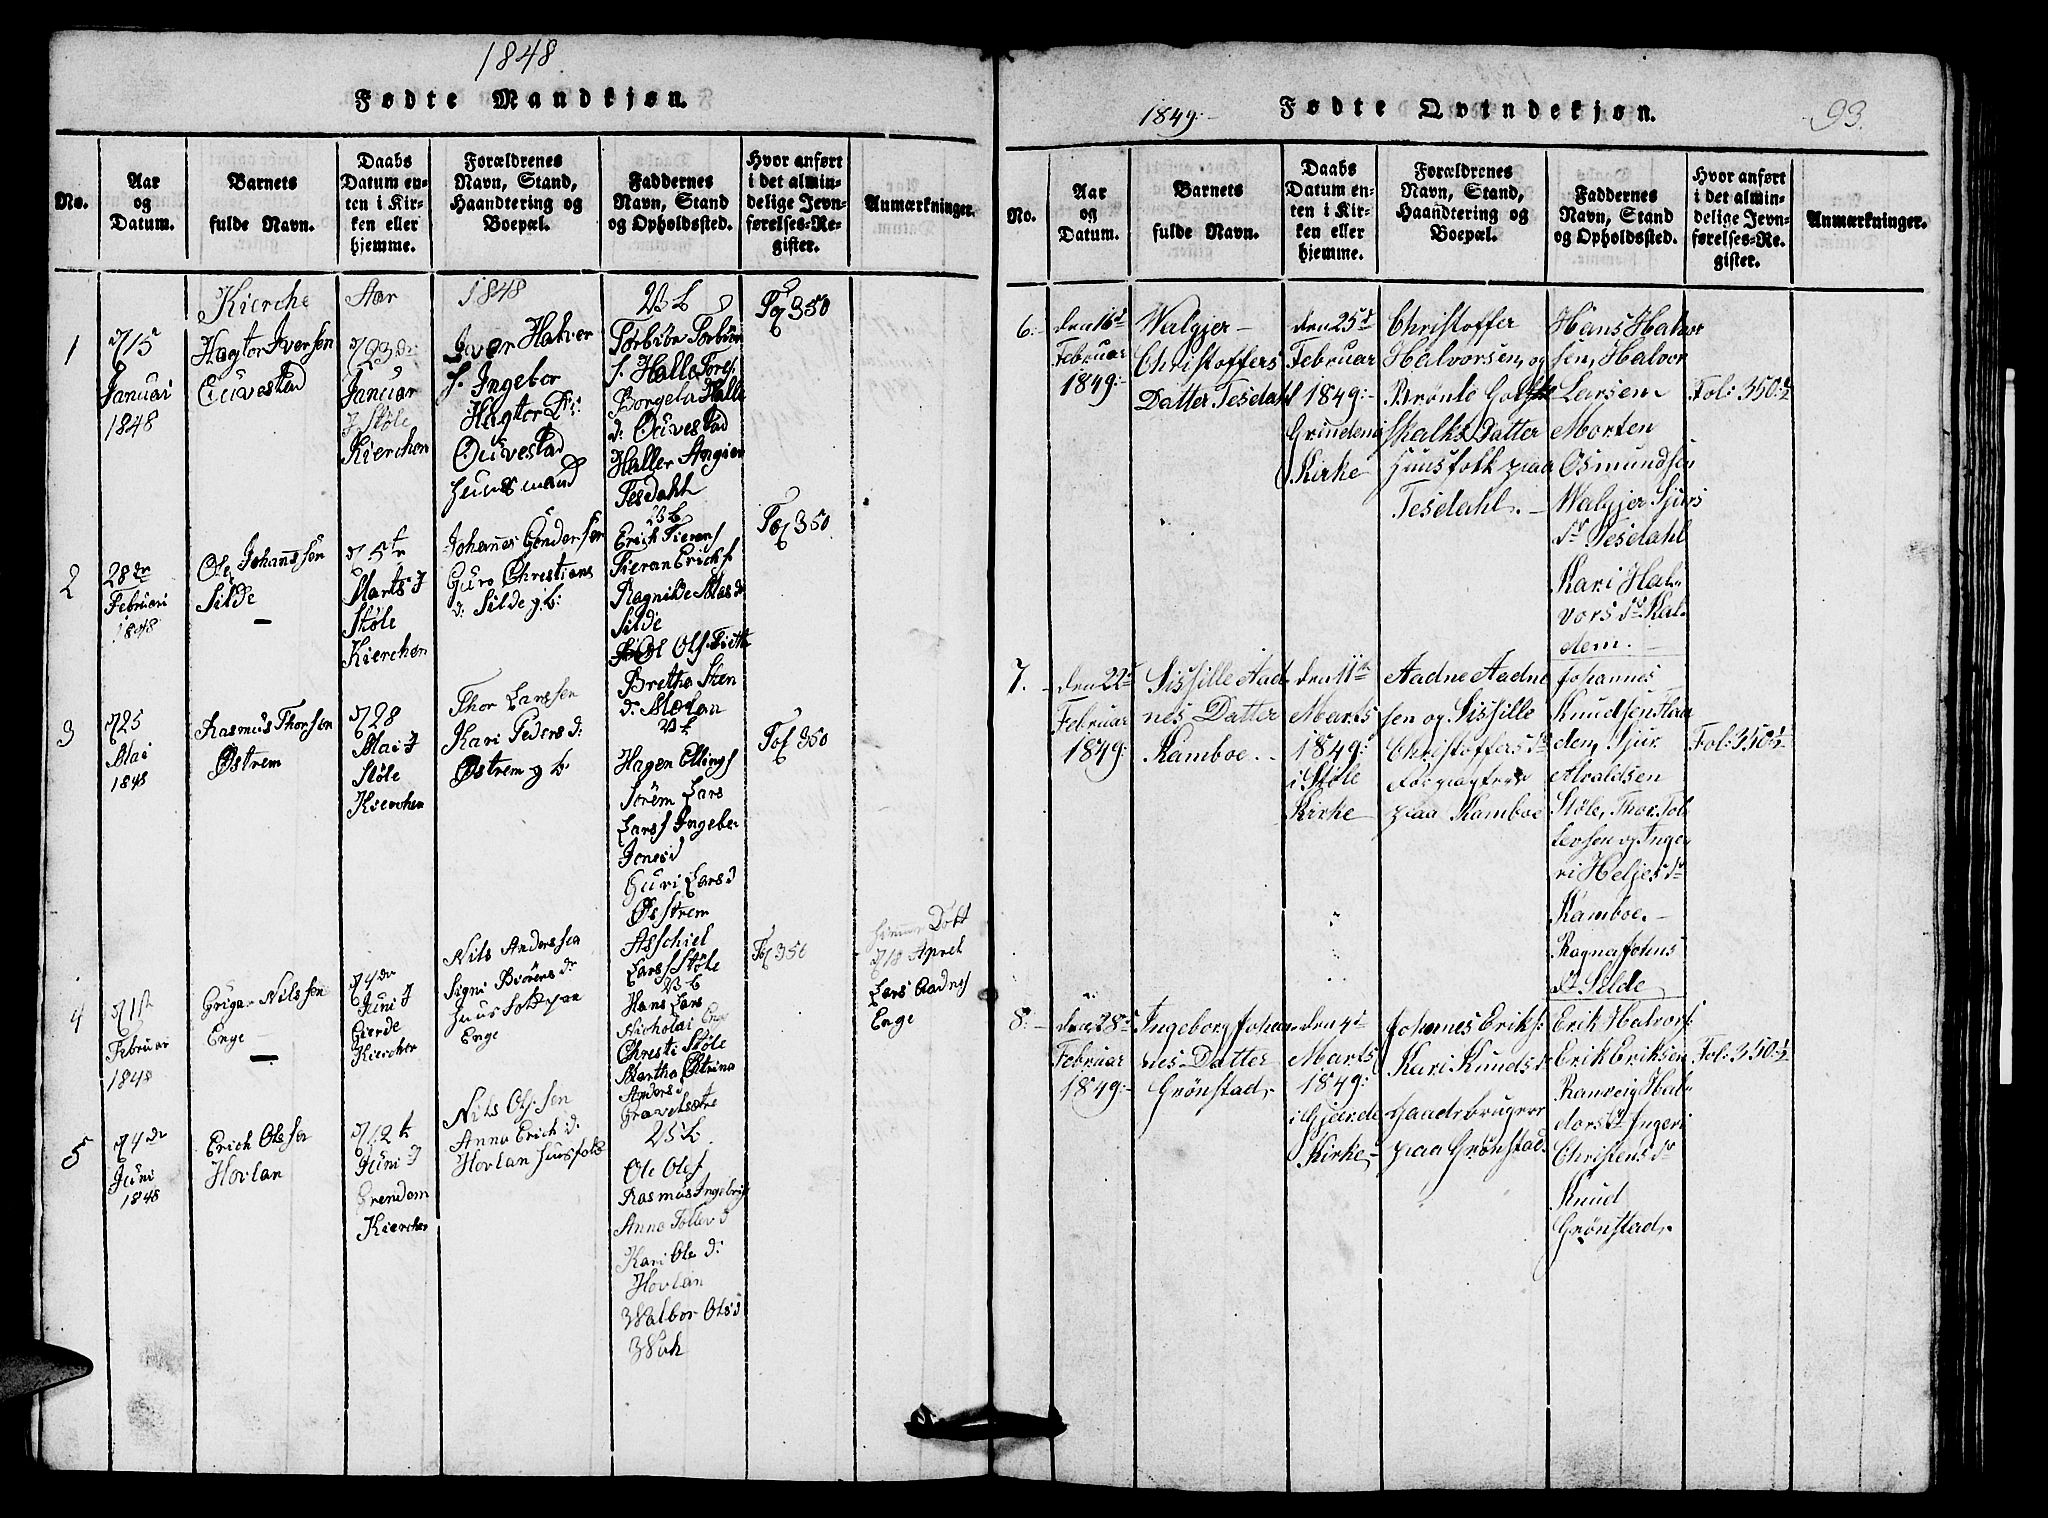 1848
Fødte Mandkjøn.
No.
Aar
og
Datum.
Barnets
fulde Navn.
Daabs
Datum en-
ten i Kir-
ken eller
hjemme.
Forældrenes
Navn, Stand,
Haandtering og
Boepæl.
Faddernes
Navn, Stand
og Opholdssted.
Hvor anført
i det almin-
delige Jevn-
førelses-Re-
gister.
Anmærkninger.
Kierche
Aar
1848
1
15
Januari
1848
Hagtor Iversen
Ouvestad
23 de
Januar
I Støle
Kierchen
Iver Halver
s. Ingebor
Hagtor Dr:
Ouvestad
huusmand
Torbiør Torbiørn
s. Halle Tores.
Borgela Halle
d: Ouvestad
Haller Angien
Tesdahl
Fol 350
2
28 de
Februari
1848
Ole Johanssen
Silde
5te
Marts I
Støle
Kierchen
Johannes Gondersen
Guro Christians
d: Silde g: b:
Erich Tierans
Tieran Erichs
Ragnilde Mas d
Silde
Ol Ols Tiett
Bretha Sten
d: Molan
Fol 350
3
25
Mai
1848
Rasmus Thorssen
Østrem
28
Mai I
Støle
Kierchen
Thor Larssen
Kari Peders d:
Østrem g b:
Hagen Ellings
Sørem Lars
Larss Ingeber
Jones d
Guri Lars d
Østrem
Asschiel
Larss Støle
Fol 350
4
1ste
Februar
1848
Griger Nilssen
Enge
4 de
Juni I
Gierde
Kierchen
Nils Anderssen
Signi Biørens dr
huusfolk paa
Enge
Hans Lars
Nicholai Enge
Christi Støle
Martha Petrina
Anders d
Gravelsætre
Fol 350
himme Døbt
18 April
Lars Aadnes
Enge
5
4 de
Juni
1848
Erich Olssen
Hovlan
12 te
Juni I
Grendem
Kierchen
Nils Olssen
Anna Erich d:
Hovlan Huusfolk
Ole Ols
Rasmus Ingebrigt
Anna Tollev d
Kari Ole d:
Hovlan
Walbor Ols d
Wik
1849:-
Fødte Qvindekjøn.
93.
No.
Aar
og
Datum.
Barnets
fulde Navn.
Daabs
Datum en-
ten i Kir-
ken eller
hjemme.
Forældrenes
Navn, Stand,
Haandtering og
Boepæl.
Faddernes
Navn, Stand
og Opholdssted.
Hvor anført
i det almin-
delige Jevn-
førelses-Re-
gister.
Anmærkninger.
6:-
den 16d
Februar
1849:-
Walgjer-
Christoffers
Datter Tesdahl
den 25d
Februar
1849:-
Grindem
Kirke
Christoffer
Halvorsen, og
Brønle
Skalks Datter
huusfolk paa
Tesedahl.-
Hans Halvor
sen, Halvor
Larsen
Morten
Osmundsen
Walgjer Sjurs
dr Tesedahl
Kari Hal-
vors dr Kal-
dem.-
Fol: 350:½
7.-
den 22d
Februar
1849:-
Sissille Aad-
nes Datter
Kamboe.-
den 11te
Marts
1849:
i Støle
Kirke
Aadne Aadne
sen og Sissille
Christoffers dr
Forpagtere
paa Kamboe
Johannes
Knudsen
den, Sjur
Alvaldsen
Støle, Thor Tol-
levsen og Inge-
ri Heljes dr
Kamboe.-
Ragna Johns
dr Silde
Fol: 350½
8:-
den 28d
Februar
1849:-
Ingeborg Johan-
nes Datter
Grønstad,
den 4d
Marts
1849:-
i Gjærde
Kirke,-
Johannes Eriks:
Kari Knuds dr
Gaardbruger
paa Grønstad.
Erik Halvors:
Erik Eriksen
Ranveig Hal-
dors dr Ingeri
Christens dr
Knud
Grønstad,-
Fol: 350:½